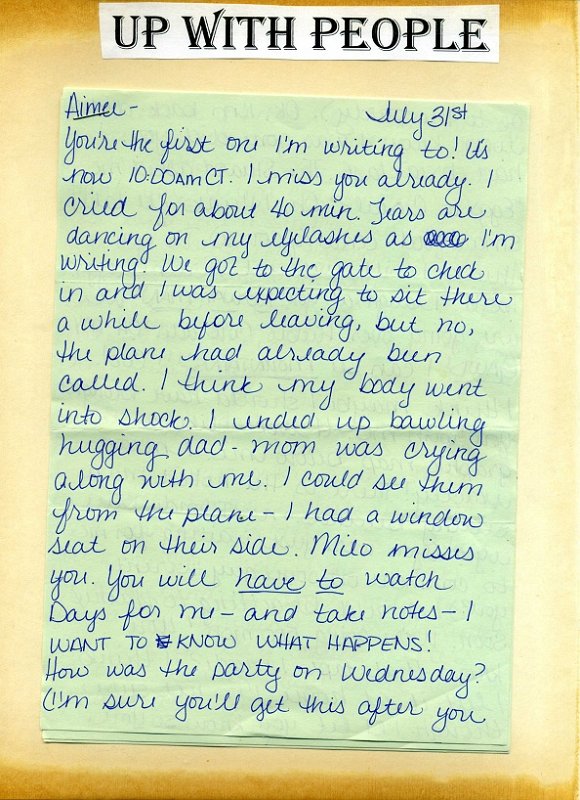 UP WITH PEOPLE
Aimee - July 31st
You're the first one I'm writing to! It's
now 10:00AM CT. I miss you already. I
cried for about 40 min. Tears are
dancing on my eyelashes as I'm
writing. We got to the gate to check
in and I was expecting to sit there
a while before leaving, but no,
the plane had already been
called. I think my body went
into shock. I ended up bawling
hugging dad - mom was crying
along with me. I could see them
from the plane - I had a window
seat on their side. Milo misses
you. You will have to watch
Days for me - and take notes - I
WANT TO KNOW WHAT HAPPENS!
How was the party on Wednesday?
(I'm sure you'll get this after you